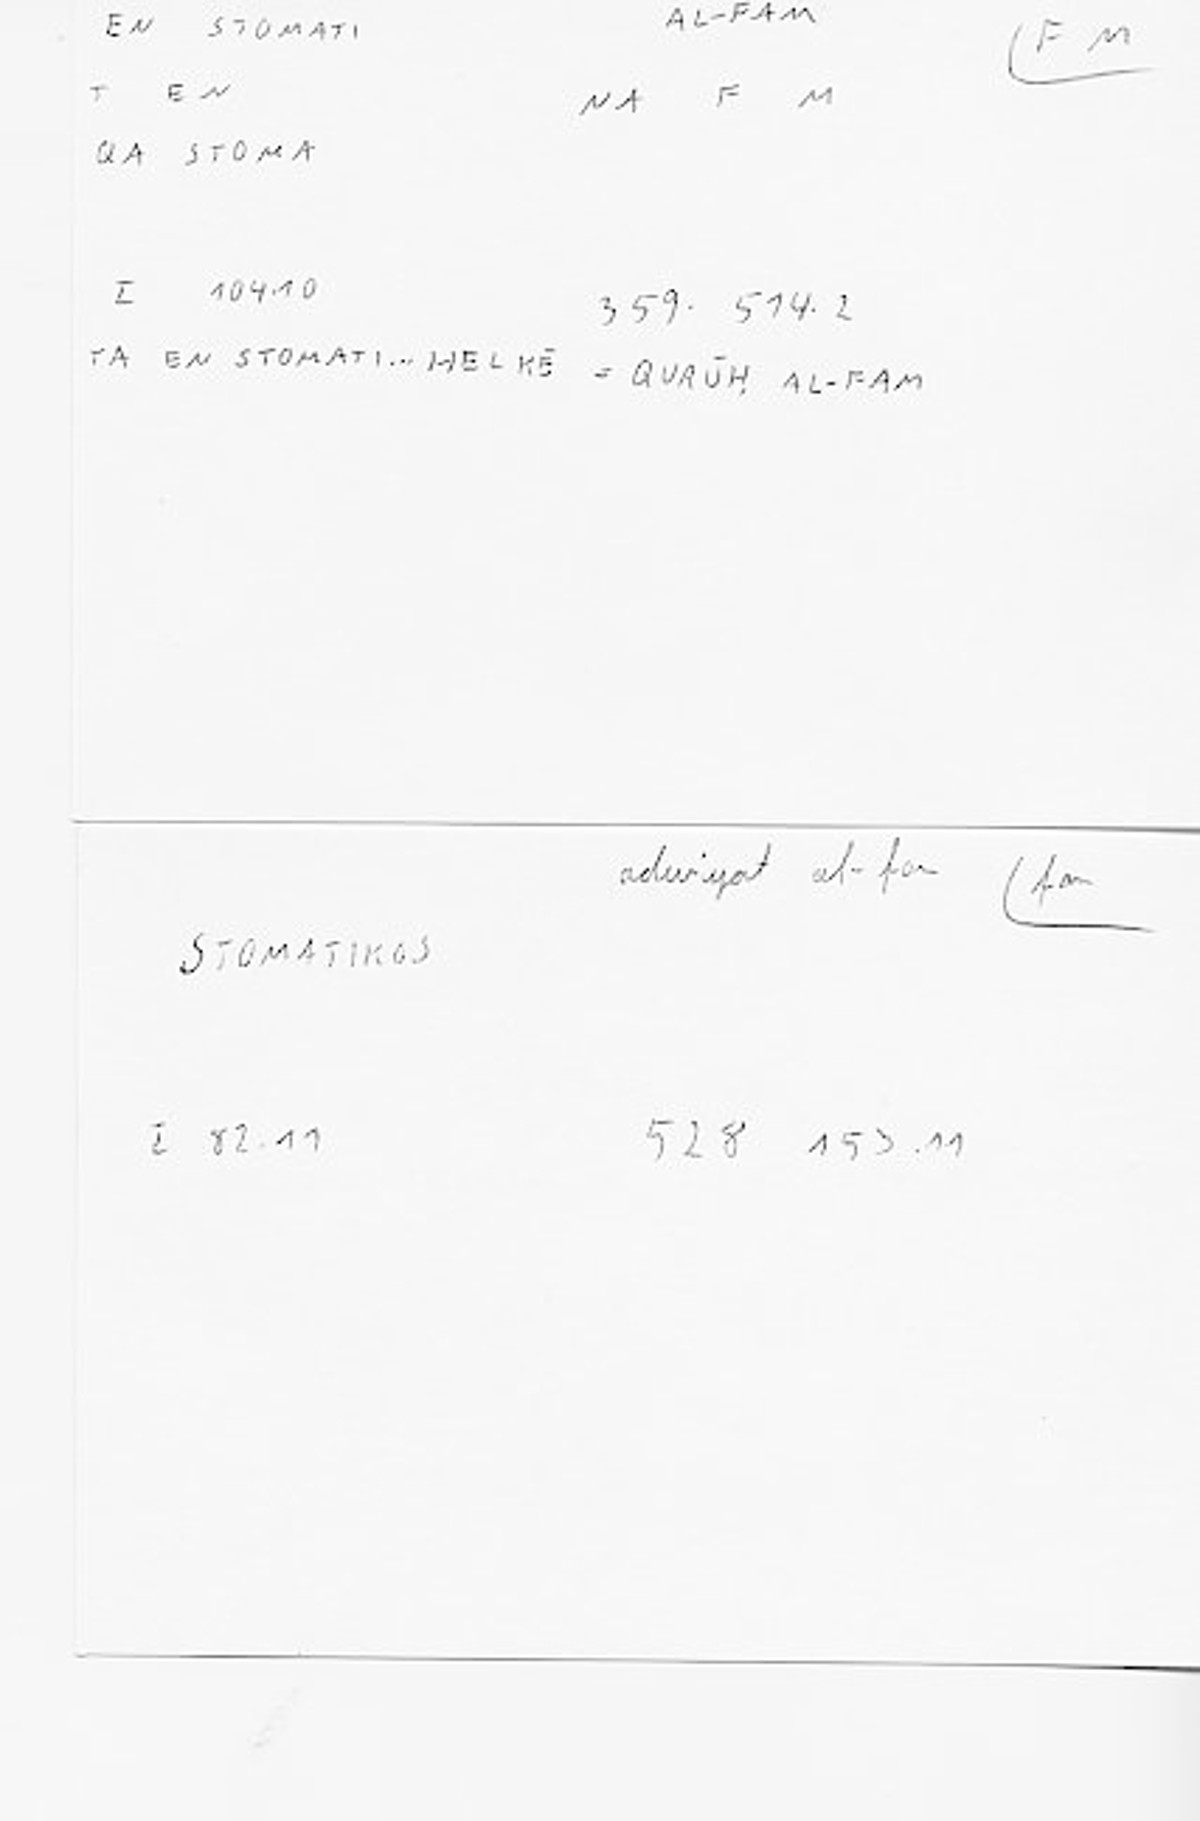 EN STOMATI AL-FAM F M
T EN NA F M
QA STOMA
I 104.10 359. 514.2
TA EN STOMATI... HELKĒ = QURŪḤ AL-FAM
adwiyat al-fam fam
STOMATIKOS
I 82.11 528 153.11